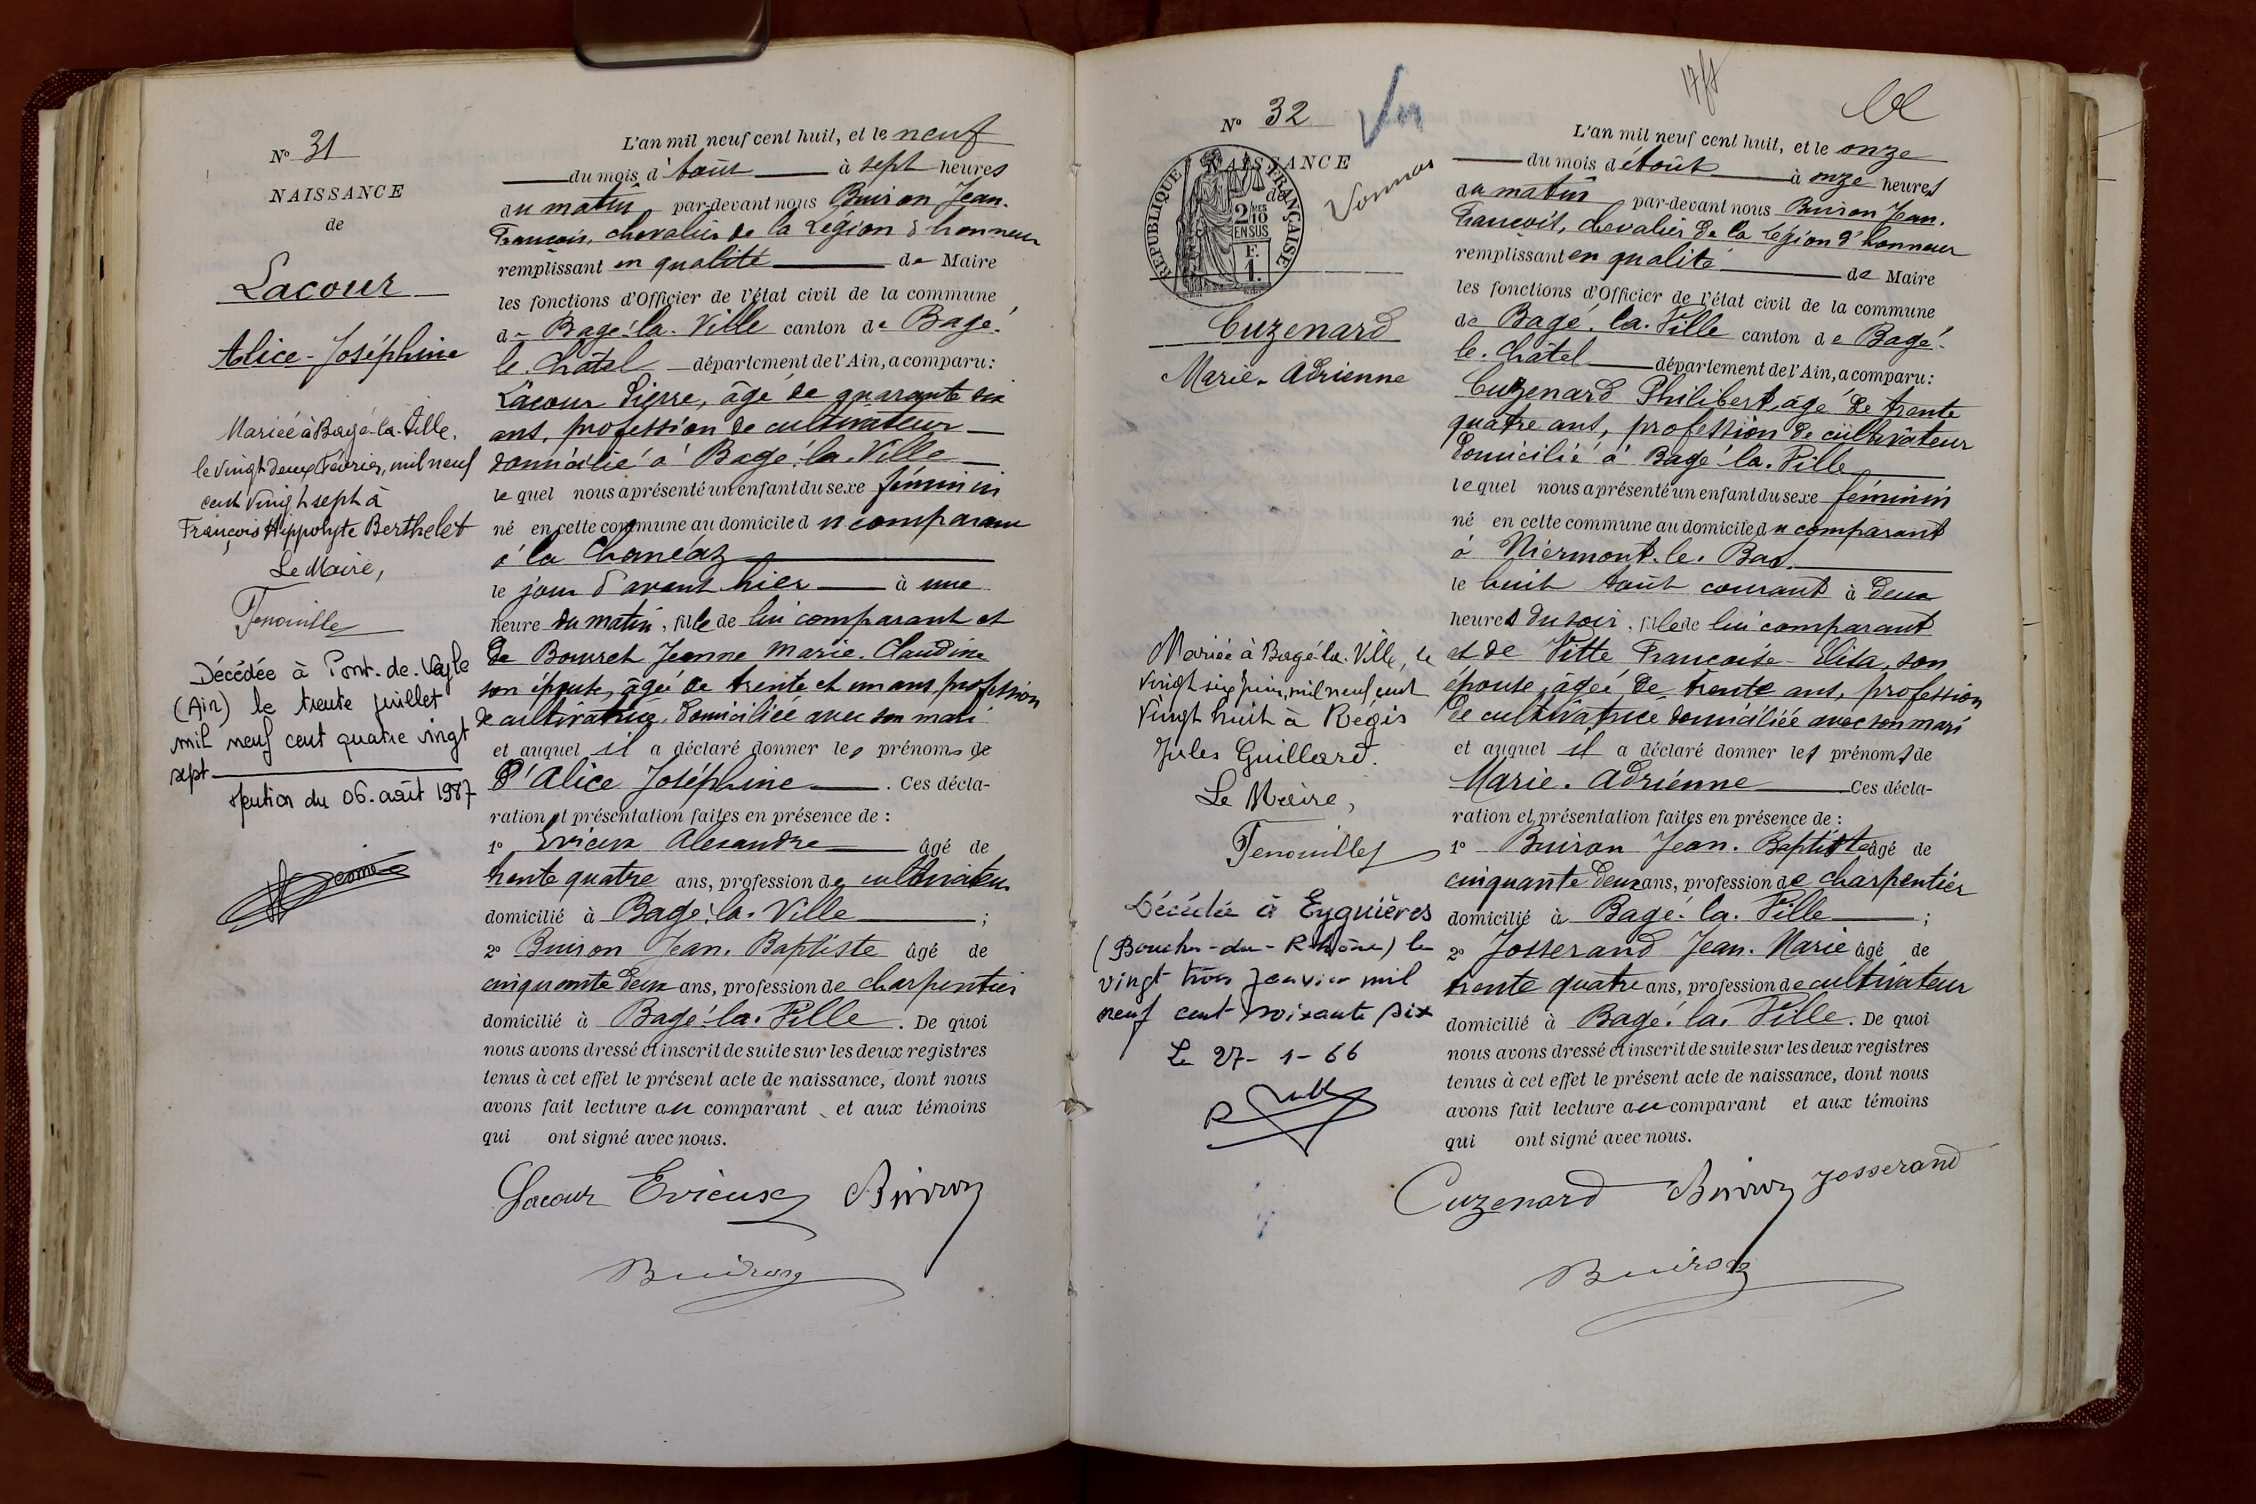 N° 31
NAISSANCE
de
Lacour
Alice-Joséphine
Mariée à Bagé-la-Ville,
le vingt deux Février, mil neuf
cent vingt sept à
François Hippolyte Berthelet
Le Maire,
Décédée à Pont-de-Veyle
(Ain) le trente juillet
mil neuf cent quatre vingt
sept
Mention du 06 août 1987
L'an mil neuf cent huit, et le neuf
du mois d'Août à sept heures
du matin par-devant nous Buiron Jean-
François, chevalier de la Légion d'honneur
remplissant en qualité de Maire
les fonctions d'Officier de l'état civil de la commune
de Bagé-la-Ville canton de Bagé-
le-Châtel département de l'Ain, a comparu:
Lacour Pierre, âgé de quarante six
ans, profession de cultivateur
domicilié à Bagé-la-Ville
lequel nous a présenté un enfant du sexe féminin
né en cette commune au domicile du comparant
à la Chanéaz
le jour d'avant hier à une
heure du matin, fille de lui comparant et
de Bourret Jeanne Marie-Claudine
son épouse, âgée de trente et un ans, profession
de cultivatrice, domiciliée avec son mari
et auquel il a déclaré donner les prénoms de
D'Alice Joséphine . Ces décla-
ration et présentation faites en présence de :
1° Evieux Alexandre âgé de
trente quatre ans, profession de cultivateur
domicilié à Bagé-la-Ville ;
2° Buiron Jean-Baptiste âgé de
cinquante deux ans, profession de charpentier
domicilié à Bagé-la-Ville . De quoi
nous avons dressé et inscrit de suite sur les deux registres
tenus à cet effet le présent acte de naissance, dont nous
avons fait lecture au comparant et aux témoins
qui ont signé avec nous.
Lacour Evieux Buiron
Buiron
N° 32
NAISSANCE
de
RÉPUBLIQUE FRANÇAISE
2/10
EN SUS
Vonnas
Cuzenard
Marie-Adrienne
Mariée à Bagé-la-Ville, le
vingt six juin, mil neuf cent
vingt huit à Régis
Jules Guillard.
Le Maire,
Décédée à Eyguières
(Bouches-du-Rhône) le
vingt trois janvier mil
neuf cent soixante six
Le 27-1-66
L'an mil neuf cent huit, et le onze
du mois d'Août à onze heures
du matin par-devant nous Buiron Jean-
François, chevalier de la légion d'honneur
remplissant en qualité de Maire
les fonctions d'Officier de l'état civil de la commune
de Bagé-la-Ville canton de Bagé-
le-Châtel département de l'Ain, a comparu:
Cuzenard Philibert, âgé de trente
quatre ans, profession de cultivateur
domicilié à Bagé-la-Ville
lequel nous a présenté un enfant du sexe féminin
né en cette commune au domicile du comparant
à Niermont-le-Bas
le huit août courant à deux
heures du soir, fille de lui comparant
et de Vitte Françoise-Elisa, son
épouse, âgée de trente ans, profession
de cultivatrice domiciliée avec son mari
et auquel il a déclaré donner les prénoms de
Marie-Adrienne Ces décla-
ration et présentation faites en présence de :
1° Buiron Jean-Baptiste âgé de
cinquante deux ans, profession de charpentier
domicilié à Bagé-la-Ville ;
2° Josserand Jean-Marie âgé de
trente quatre ans, profession de cultivateur
domicilié à Bagé-la-Ville . De quoi
nous avons dressé et inscrit de suite sur les deux registres
tenus à cet effet le présent acte de naissance, dont nous
avons fait lecture au comparant et aux témoins
qui ont signé avec nous.
Cuzenard Buiron Josserand
Buiron